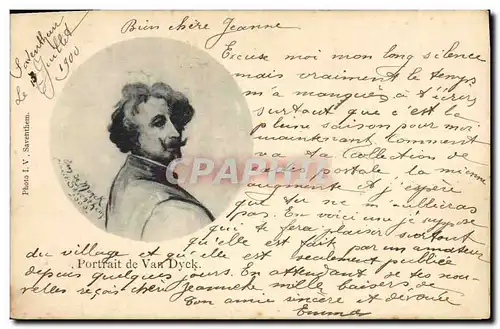 Saventhem
Le 3 Juillet
1900
Bien chère Jeanne
Excuse moi mon long silence
mais vraiment le temps
m'a manqués à t'écrire
surtout que c'est la
pleine saison pour moi
maintenant. Comment
va ta Collection de
cartes postale, la mienne
augmente et j'espère
que tu ne m'oublieras
pas. En voici une je suppose
qui te fera plaisir surtout
qu'elle est fait par un amateur
du village et qu'elle est seulement publiée
depuis quelques jours. En attendant de tes nou-
velles reçois chère Jeannete mille baisers de
ton amie sincère et dévouée
Emma
Photo I. V., Saventhem.
CPARAMA
Portrait de Van Dyck.